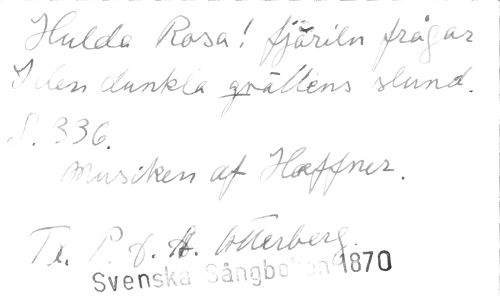 Hulda Rosa! fjäriln frågar
I den dunkla qvällens stund.
S. 336.
Musiken af Hæffner.
Tr. P. J. A. Otterberg.
Svenska Sångboken 1870